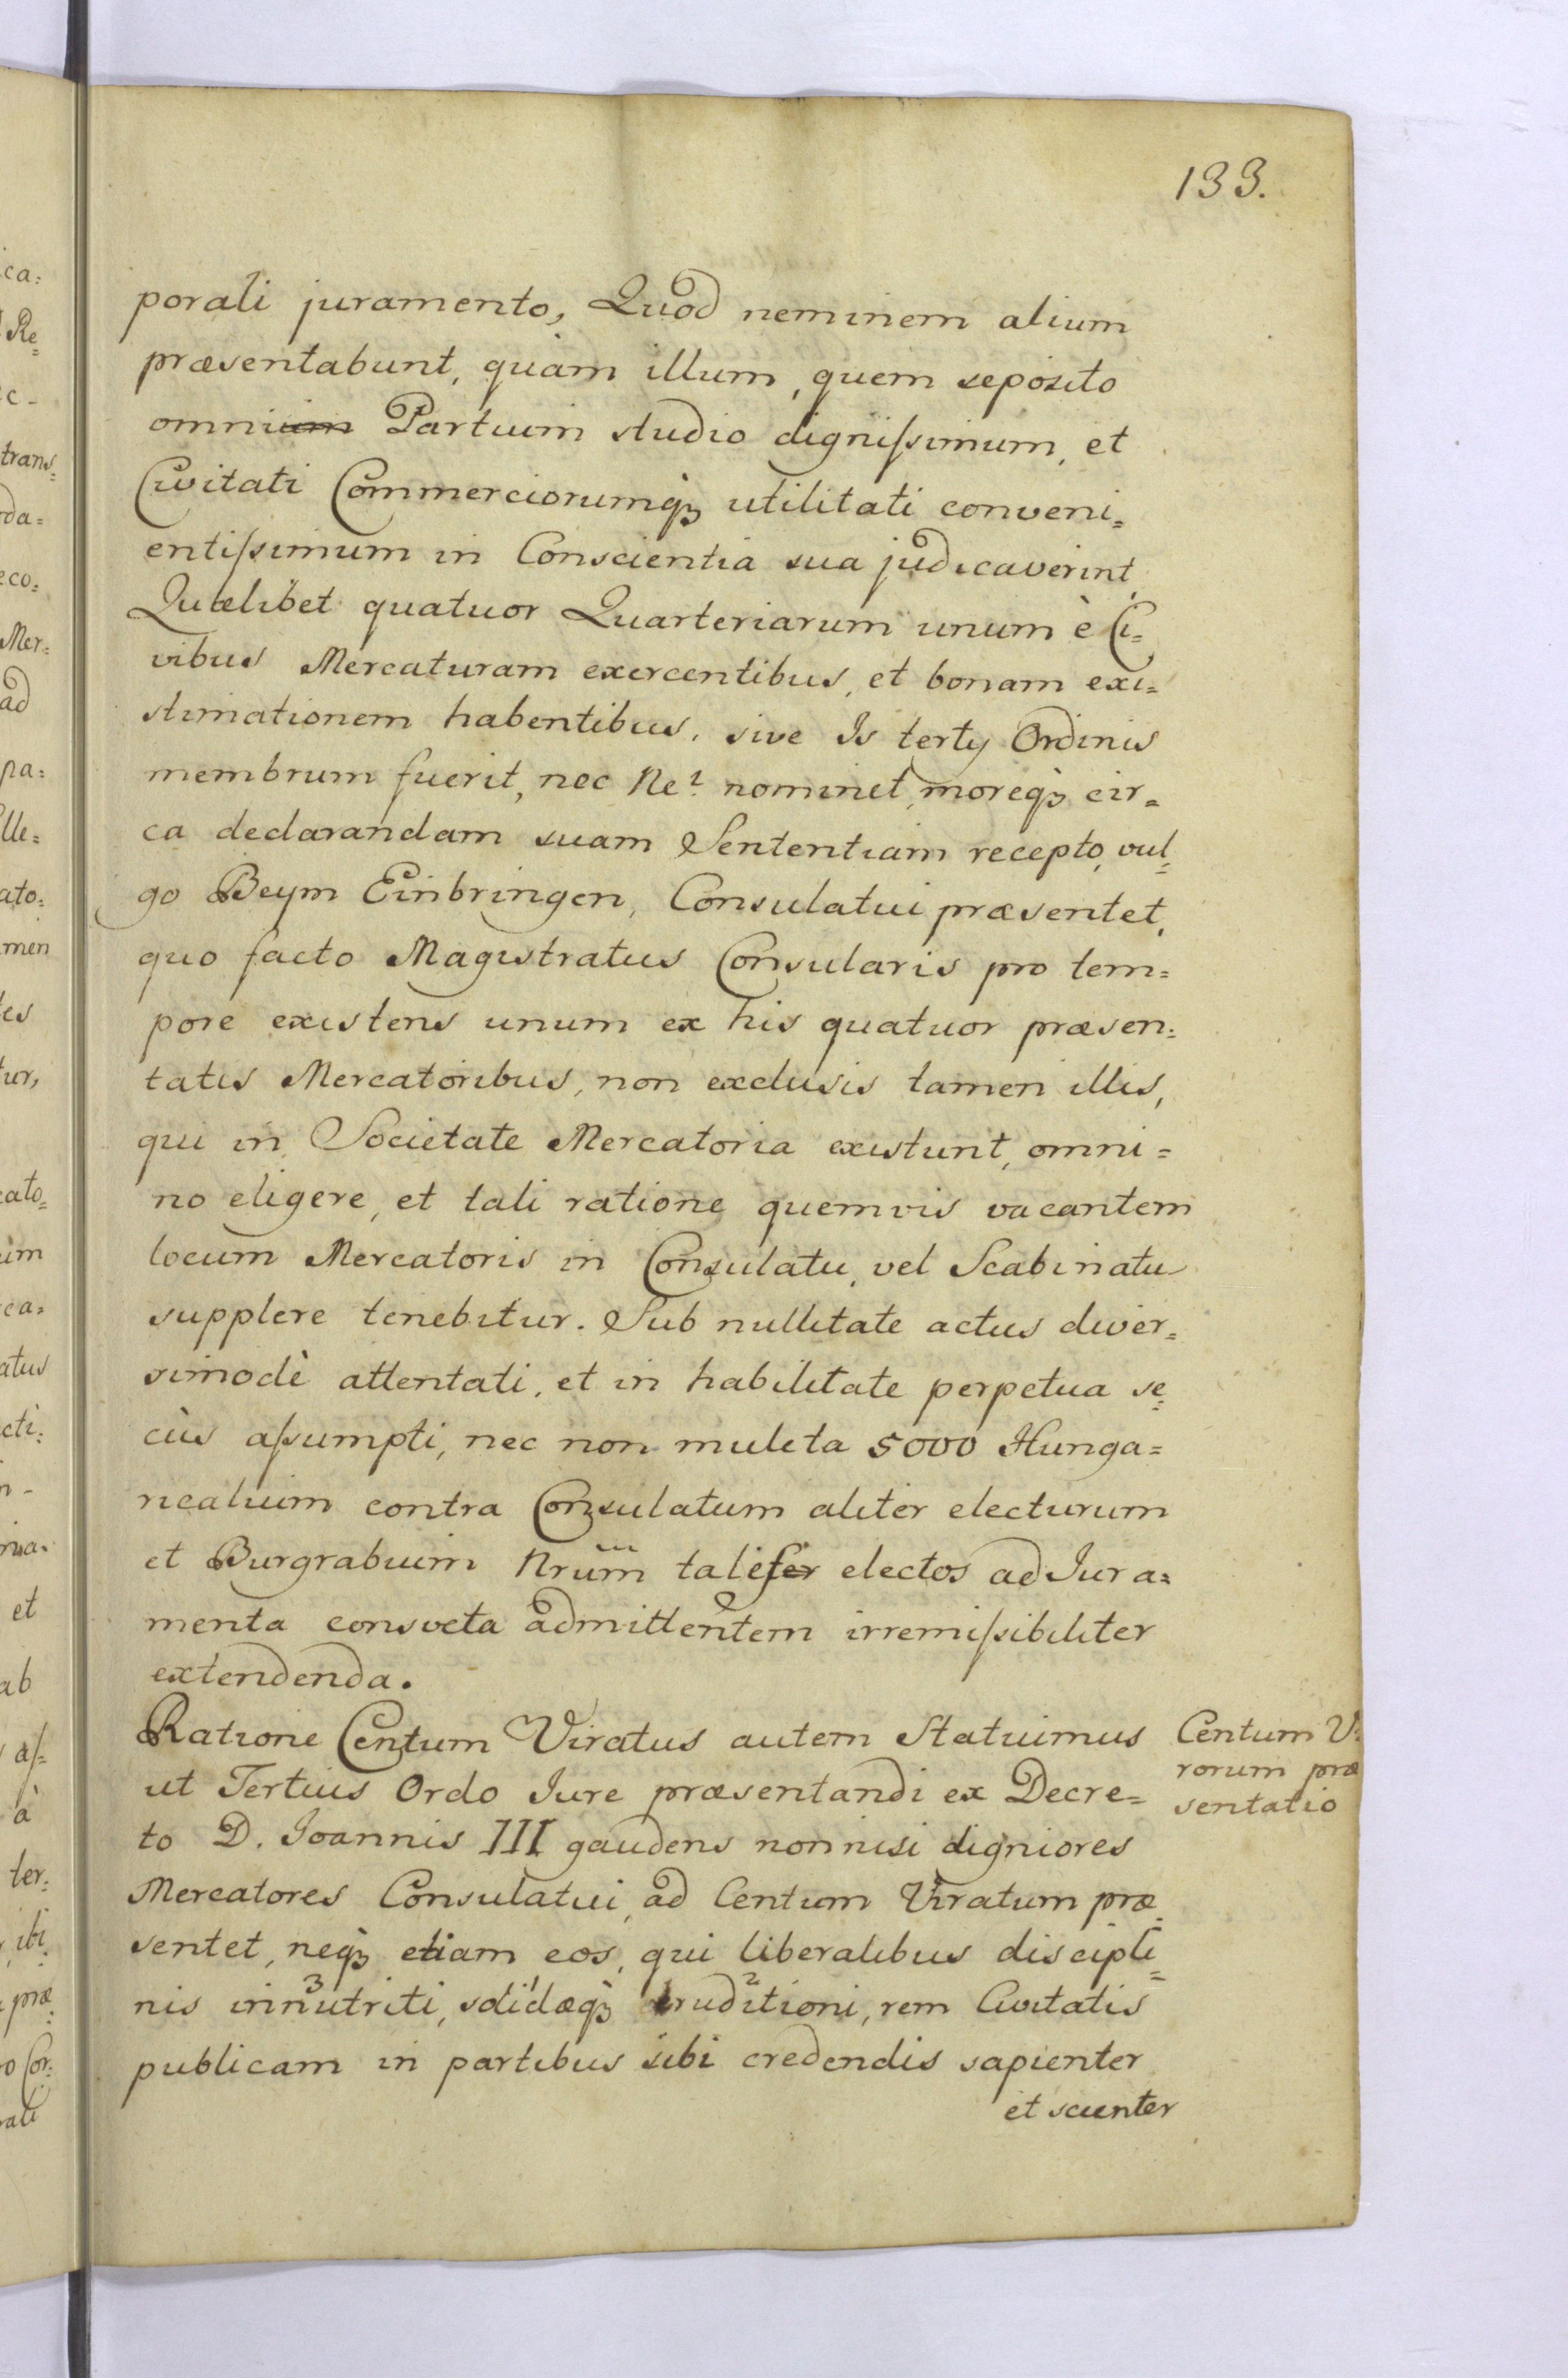 133.
porali juramento, Quod neminem alium
præsentabunt, quàm illum, quem seposito
omnium Partium studio dignissimum, et
Civitati Commerciorumqꝫ utilitati conveni=
entissimum in Conscientia sua judicaverint,
Quælibet quatuor Quarteriarum unum è Ci=
vibus Mercaturam exercentibus, et bonam exi=
stimationem habentibus, sive Is tertij Ordinis
membrum fuerit, nec Ne? nominet, moreqꝫ cir=
ca declarandam suam Sententiam recepto, vul=
go Beym Einbringen, Consulatui præsentet,
quo facto Magistratus Consularis pro tem=
pore existens unum ex his quatuor præsen=
tatis Mercatoribus, non exclusis tamen illis,
qui in Societate Mercatoria existunt, omni=
no eligere, et tali ratione quemvis vacantem
locum Mercatoris in Consulatu, vel Scabinatu
supplere tenebitur. Sub nullitate actus diver=
simodè attentati, et in habilitate perpetua se=
cùs assumpti, nec non mulcta 5000 Hunga=
ricalium contra Consulatum aliter electurum
et Burgrabium Nrum taliter electos ad Jura=
menta consveta admittentem irremissibiliter
extendenda.
Ratione Centum Viratus autem Statuimus
ut Tertius Ordo Jure præsentandi ex Decre=
to D. Joannis III gaudens non nisi digniores
Mercatores Consulatui, ad Centum Viratum præ=
sentet, neqꝫ etiam eos, qui liberalibus discipli=
nis innutriti, solidæqꝫ eruditioni, rem Civitatis
publicam in partibus sibi credendis sapienter
et scienter
Centum Vi
rorum præ
sentatio